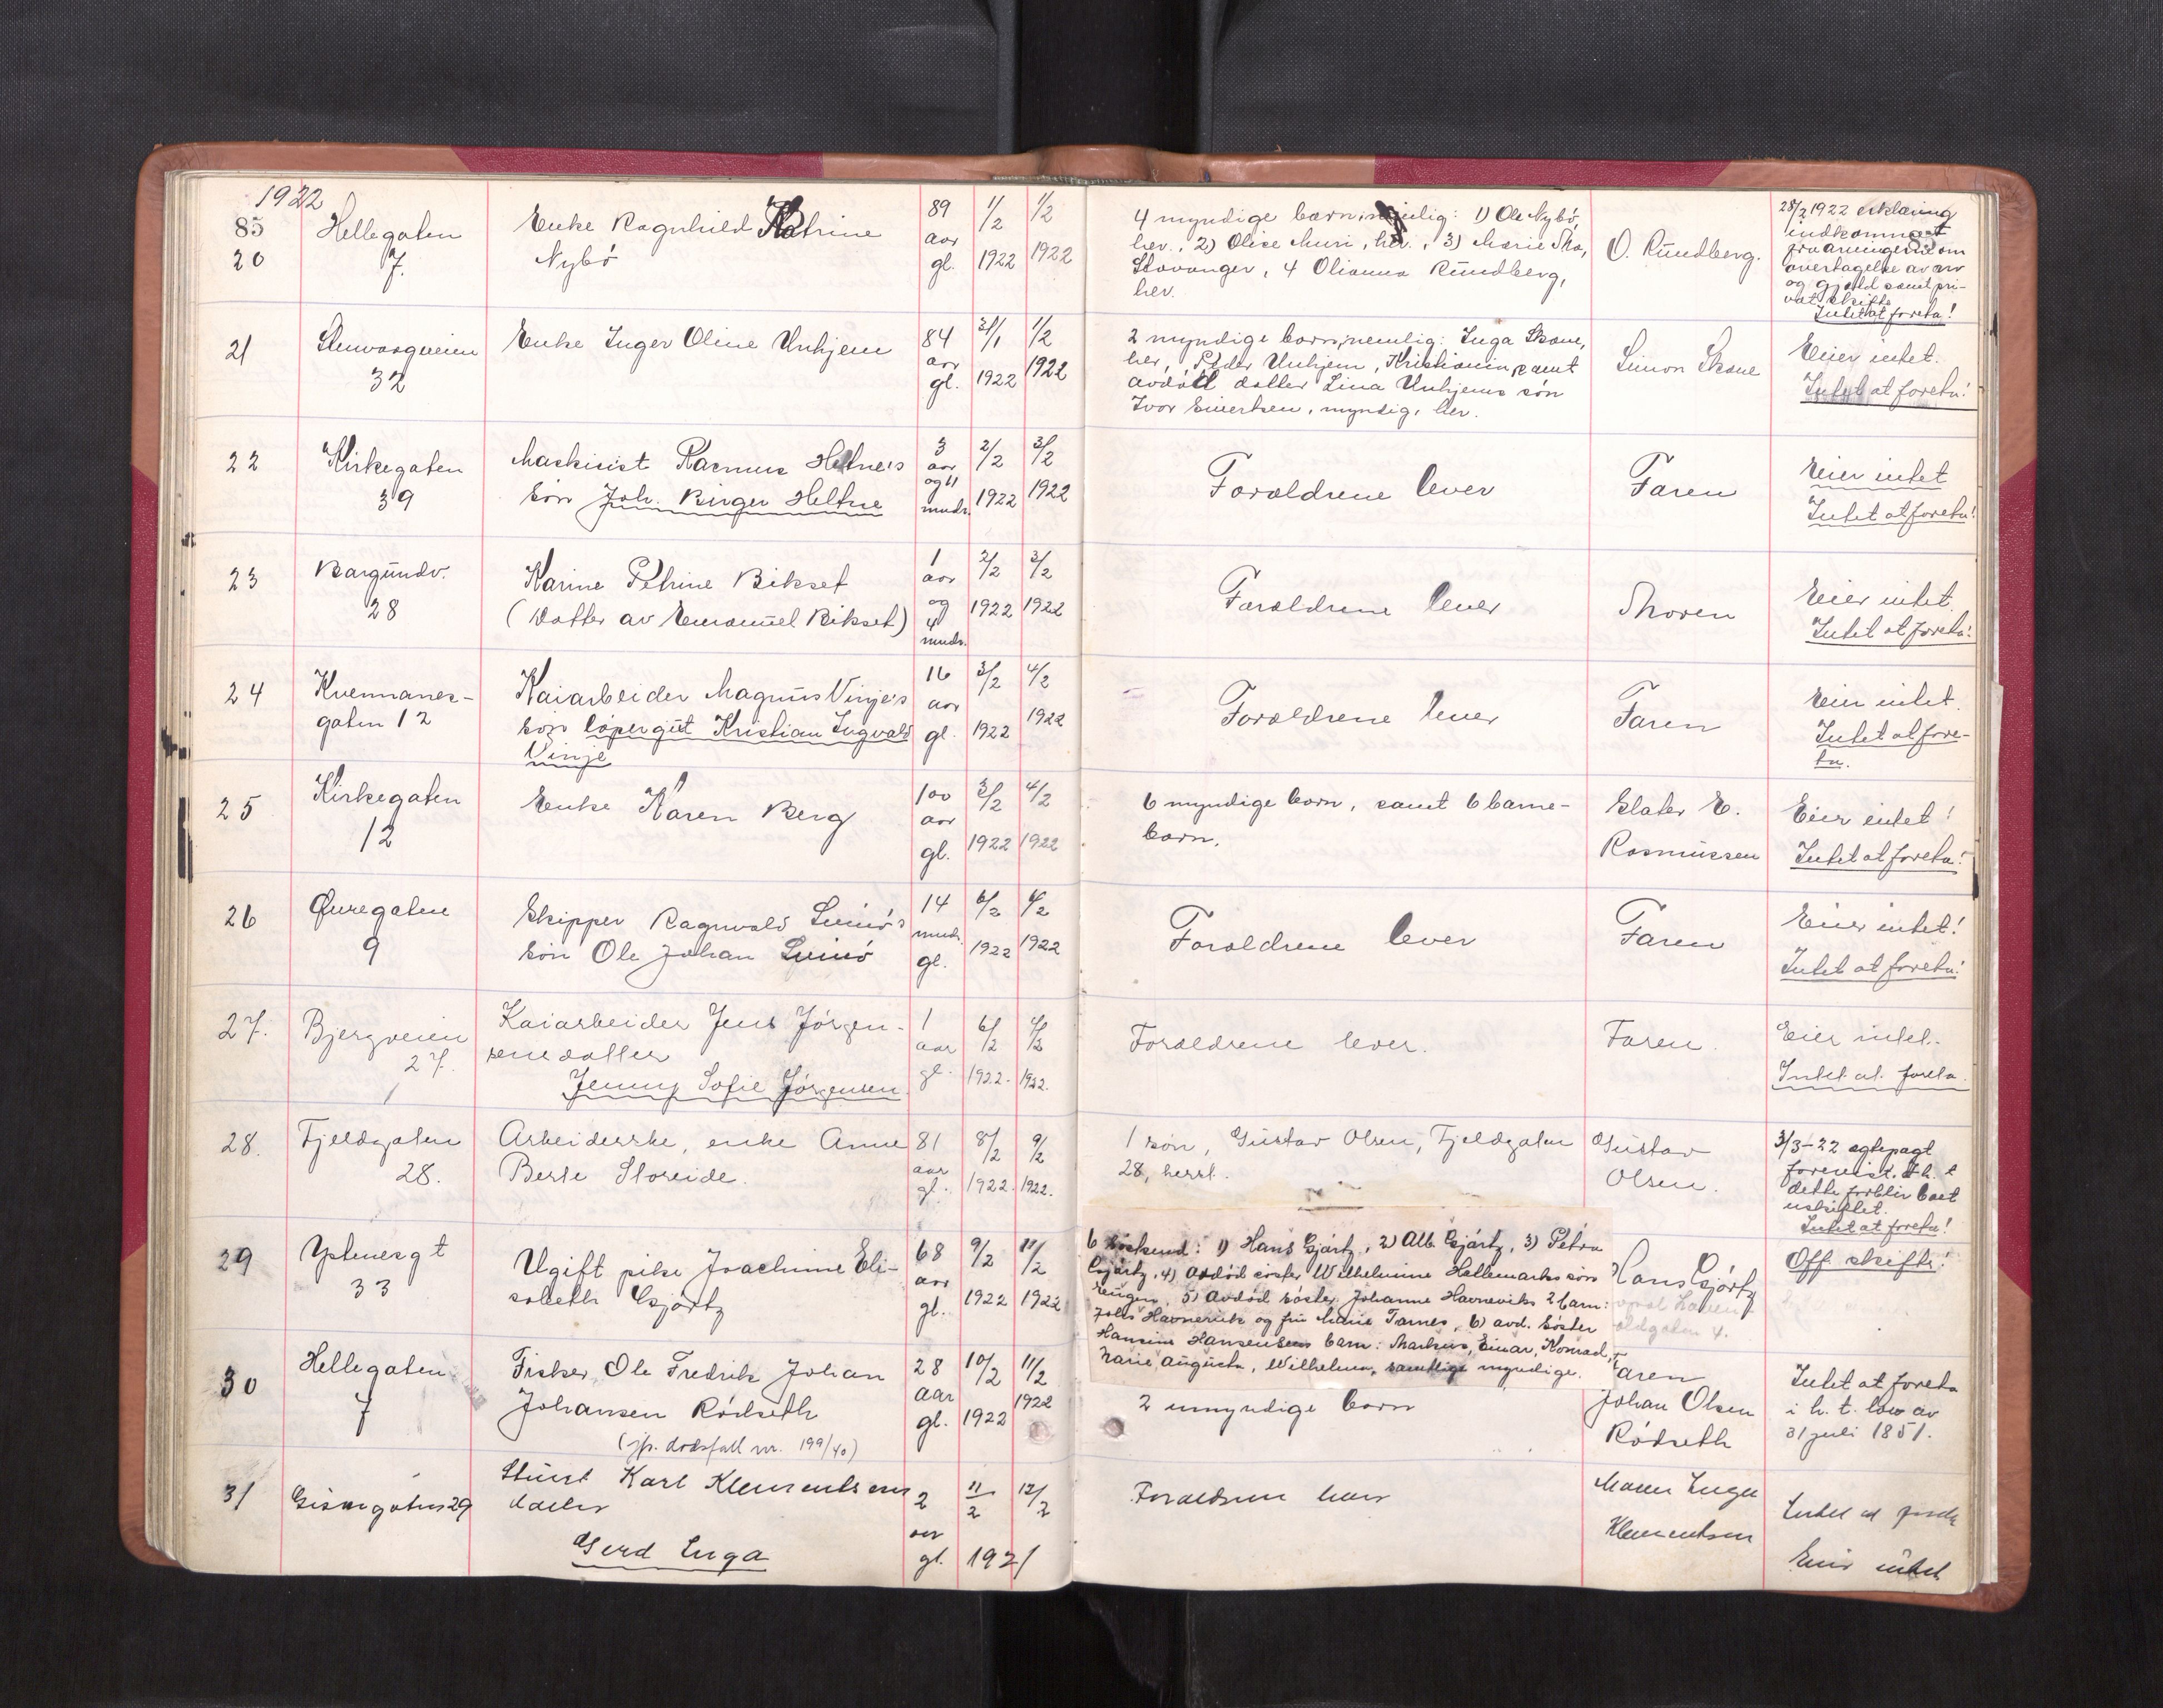 1922
85
20
Hellegaten
7.
Enke Ragnhild Katrine
Nybö
89
aar
gl.
1/2
1922
1/2
1922
4 myndige barn, nemlig: 1) Ole Nybö,
her., 2) Olise Muri, her., 3) Marie Moe,
Stavanger, 4 Olianna Rundberg,
her.
O. Rundberg.
28/2 1922 erklæring
indkommet
fra arvingerne om
overtagelse av arv
og gjæld samt pri-
vat skifte
Intet at foreta!
21
32
Enke Inger Oline Unhjem
84
aar
gl.
31/1
1922
1/2
1922
2 myndige barn, nemlig: Inga Skane,
her, Peder Unhjem, Kristiania, samt
avdöd datter Lina Unhjems sön
Ivar Eivertsen, myndig, her.
Simon Skane
Eier intet.
Intet at foreta!
22
Kirkegaten
39
Maskinist Rasmus Heltne's
sön Joh. Birger Heltne
3
aar
og 11
mndr.
2/2
1922
3/2
1922
Forældrene lever
Faren
Eier intet
Intet at foreta!
23
Borgundv.
28
Karine Petrine Bikset
(Datter av Emanuel Bikset)
1
aar
og
4
mndr.
2/2
1922
3/2
1922
Forældrene lever
Moren
Eier intet.
Intet at foreta!
24
Kvennanes-
gaten 12
Kaiarbeider Magnus Vinje's
sön löpergut Kristian Ingvald
Vinje
16
aar
gl.
3/2
1922
4/2
1922
Forældrene lever
Faren
Eier intet.
Intet at fore-
ta.
25
Kirkegaten
12
Enke Karen Berg
100
aar
gl.
3/2
1922
4/2
1922
6 myndige barn, samt 6 barne-
barn.
Slakter E.
Rasmussen
Eier intet!
Intet at foreta!
26
Øwregaten
9
Skipper Ragnvald
sön Ole Johan
14
mndr.
gl.
6/2
1922
6/2
1922
Forældrene lever
Faren
Eier intet!
Intet at foreta!
27.
Bjergveien
27.
Kaiarbeider Jens Jörgen-
sens datter
Jenny Sofie Jörgensen
1
aar
gl.
6/2
1922.
1922.
Forældrene lever.
Faren.
Eier intet.
Intet at foreta.
28.
Fjeldgaten
28.
Arbeiderske, enke Anne
Berte Storeide.
81
aar
gl.
8/2
1922.
9/2
1922.
1 sön, Gustav Olsen, Fjeldgaten
28, herst.
Gustav
Olsen.
3/3-22 egtepagt
forevist. I h. t
dette forblir boet
uskiftet.
Intet at foreta!
29
Ystenesgt
33
Ugift pike Joachime Eli-
sabeth Gjörtz
68
aar
gl.
9/2
1922
10/2
1922
6 söskend: 1) Hans Gjörtz, 2) Alb. Gjörtz, 3) Petra
Gjörtz, 4) avdöd söster Wilhelmine Hellemarks sön
Eugen, 5) avdöd söster Johanne Havneviks 2 barn:
Johs Havnevik og fru Marie Tarnes, 6) avd. söster
Hansine Hansens barn: Markus, Einar, Konrad,
Marie Augusta, Wilhelma, samtlige myndige.
Hans Gjörtz
Off. skifte!
30
Hellegaten
7
Fisker Ole Fredrik Johan
Johansen Rödseth
(jfr. dödsfall nr. 199/40)
28
aar
gl.
10/2
1922
11/2
1922
2 umyndige barn
Faren
Johan Olsen
Rödseth
Intet at foreta
i h. t. lov av
31 juli 1851.
31
Giskegaten 29
Stuert Karl Klementsens
datter
Gerd Inga
2
aar
gl.
11/2
1921
12/2
Forældrene lever
Moren Inga
Klementsen
Intet at foreta
Eier intet